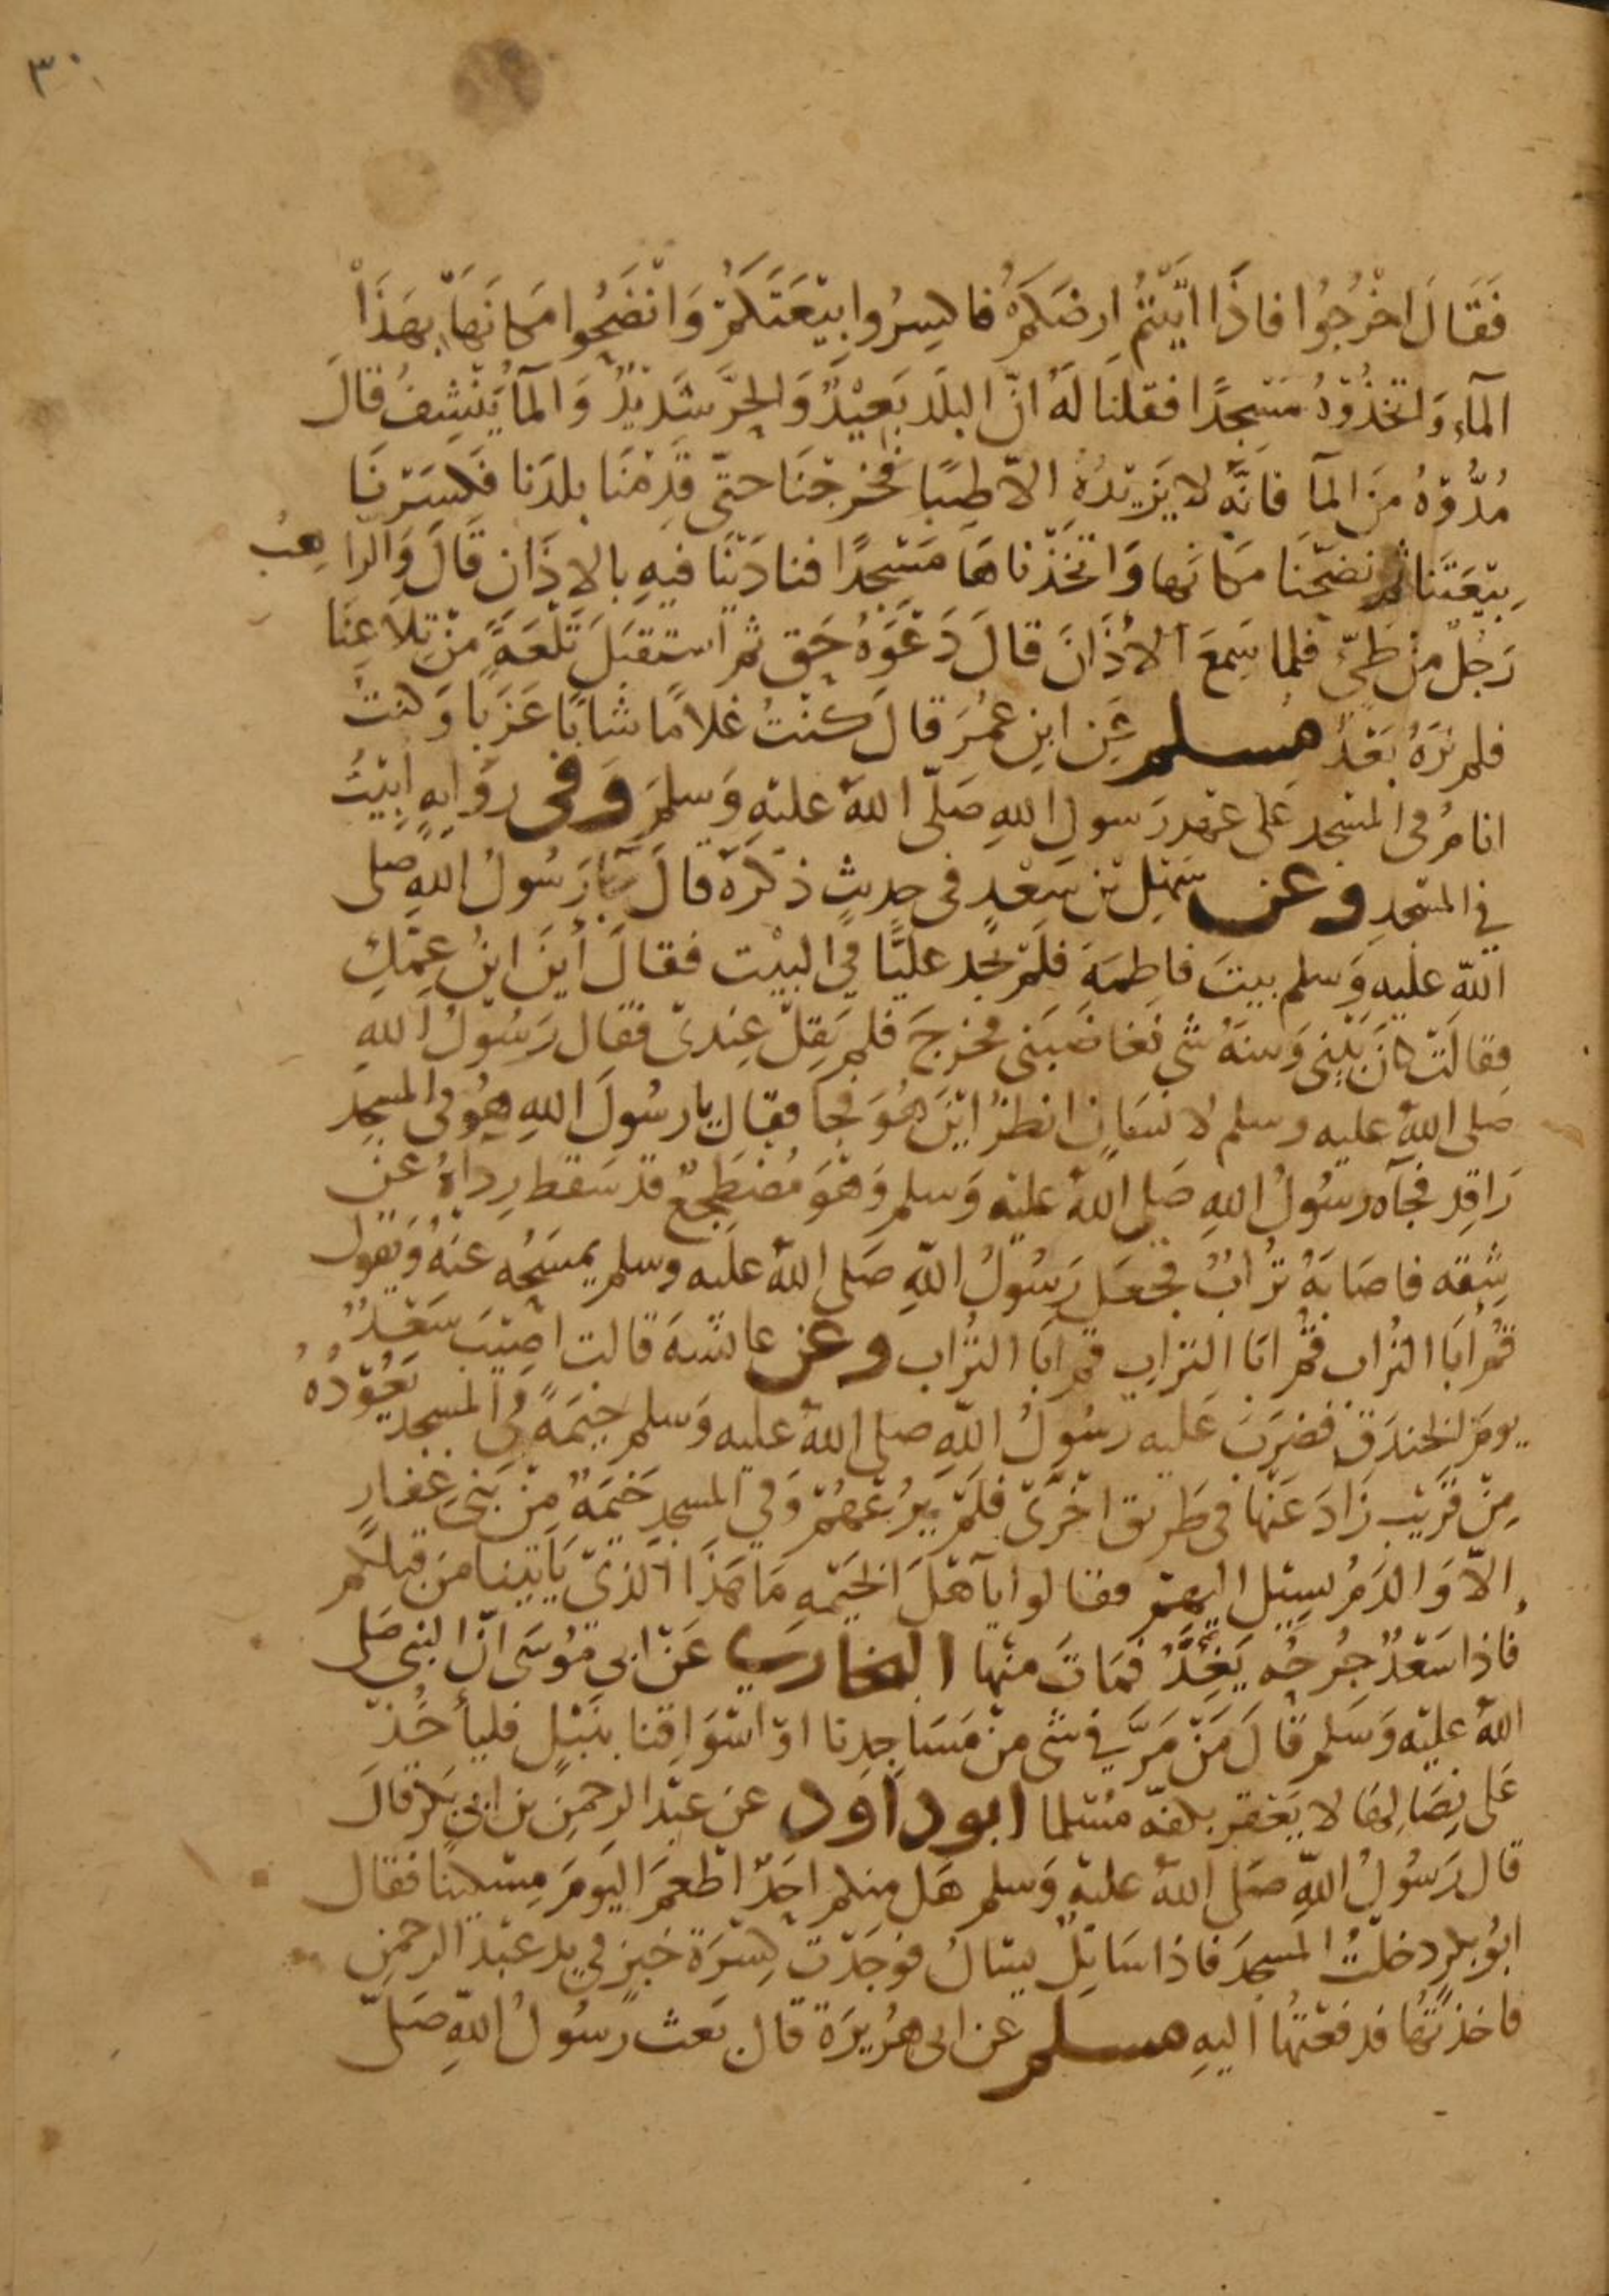 ٣٠
فَقَالَ اخْرُجُوا فاذَا اتَيْتُمْ ارضَكم فاكسِرُوا بِيْعَتَكُمْ وَانْضَحُوا مَكانَهَا بِهَذَا
المآءِ وَاتخذُوْهُ مَسْجِدًا فقلنَا لَهُ انّ البلَد بَعِيْدٌ وَالحَرَّ شَدِيْدٌ وَالمآ يَنْشِفُ قالَ
مُدُّوْهُ مِنَ المآ فانَّه لا يَزِيْدُهُ الاّ طِيبًا فخرجْنَا حتّى قَدِمْنَا بلدَنا فكسَرْنَا
بِيْعَتَنا ثم نضحْنَا مكانَها وَاتخَذْناهَا مَسْجِدًا فنادَيْنَا فيهِ بالاذَان قَالَ وَالرّاهِبُ
رَجُلٌ من طيّءٍ فلما سَمِعَ الأذَانَ قالَ دَعْوَهُ حَق ثم استقبَلَ تَلْعَةً مِنْ تِلاَعِنَا
فلم نرَهُ بَعْدُ مسلم عَنِ ابنِ عمُرَ قالَ كنْتُ غلامًا شابًا عَزَبًا وَكنتُ
انامُ فى المسْجِد عَلى عهْدِ رَسولِ اللهِ صَلّى اللهُ عليْهِ وَسَلمَ وَفى روَايهٍ ابِيْتُ
في المسْجدِ وعن سَهْلِ بْنِ سَعْدٍ فى حديثٍ ذكرَهُ قالَ جآ رَسُولُ اللهِ صلى
اللهُ عليْهِ وَسلم بيتَ فاطِمَةَ فلَمْ يجد عليًّا في البيْت فقالَ أينَ ابنُ عمّكِ
فقالَتْ كانَ بَيْنِى وَبينهُ شىٌ فغاضَبَنى فخرجَ فلم يَقِلْ عِندىْ فقال رَسُوْلُ اللهِ
صَلى اللهُ عليه وسلم لانسَانٍ انظرْ ايْنَ هُوَ فجآ فقال يا رسُولَ اللهِ هُو فى المسجد
رَاقِد فجآه رسُولُ اللهِ صَلى اللهُ عليْه وَسلم وَهْوَ مُضْطَجِعٌ قد سَقَط رِداؤهُ عَنْ
شِقه فاصَابَهُ ترُابٌ فجعَل رَسُولُ اللّهِ صَلى اللهُ عليه وسلم يمسَحُه عنْهُ وَيقول
قُمْ ابَا التُراب قُمْ ابَا الترابِ قم ابَا التُراب وعن عائشهَ قالت اصِيْبَ سَعْدٌ
يومَ الخندَقِ فضرَبَ عَليه رسُولُ اللّهِ صلى اللهُ عليه وَسلم خيمَةً فى المسجد يَعُوْدُهُ
مِنْ قَرِيْب زَادَ عَنْها فى طَريق اخْرَىْ فلَمْ يَرُعْهُمْ وَفي المسجدِ خَيمَةٌ مِنْ بَنى غفارٍ
الاّ وَالدَمُ يسِيْل اليهمْ فقالوا يآ اهْلَ الخيْمهِ مَا هَذَا الّذيْ يَأتِينا مِنْ قبلكم
فاذا سَعْدٌ جُرحُه يَغِذُّ فمَاتَ منْها البخاري عَنْ ابى مُوسَى انّ النبى صَلى
اللهُ عليْه وَسَلم قالَ مَنْ مَرَّ فِي شىٍ منْ مَسَاجِدِنا اوْ اسْوَاقِنا بنَبْلٍ فليأخُذْ
عَلى نِصَالِهَا لا يَعْقر بكفّه مسْلما ابوداود عن عبْد الرحمنِ بن ابى بكر قالَ
قال رَسُولُ اللّهِ صَلى اللهُ عليْهِ وَسلم هَل منكم احَدٌ اطْعمَ اليَومَ مِسْكِينًا فقال
ابُو بكرٍ دخلْتُ المَسجدَ فاذا سَائِلٌ يسْالُ فوجَدْت كِسْرَةَ خبزٍ في يد عَبْد الرحمنِ
فاخذتهَا فدفعْتهُا اليهِ مسلم عن ابى هُرَيرَة قال بَعث رَسُولُ اللّهِ صَلىّ